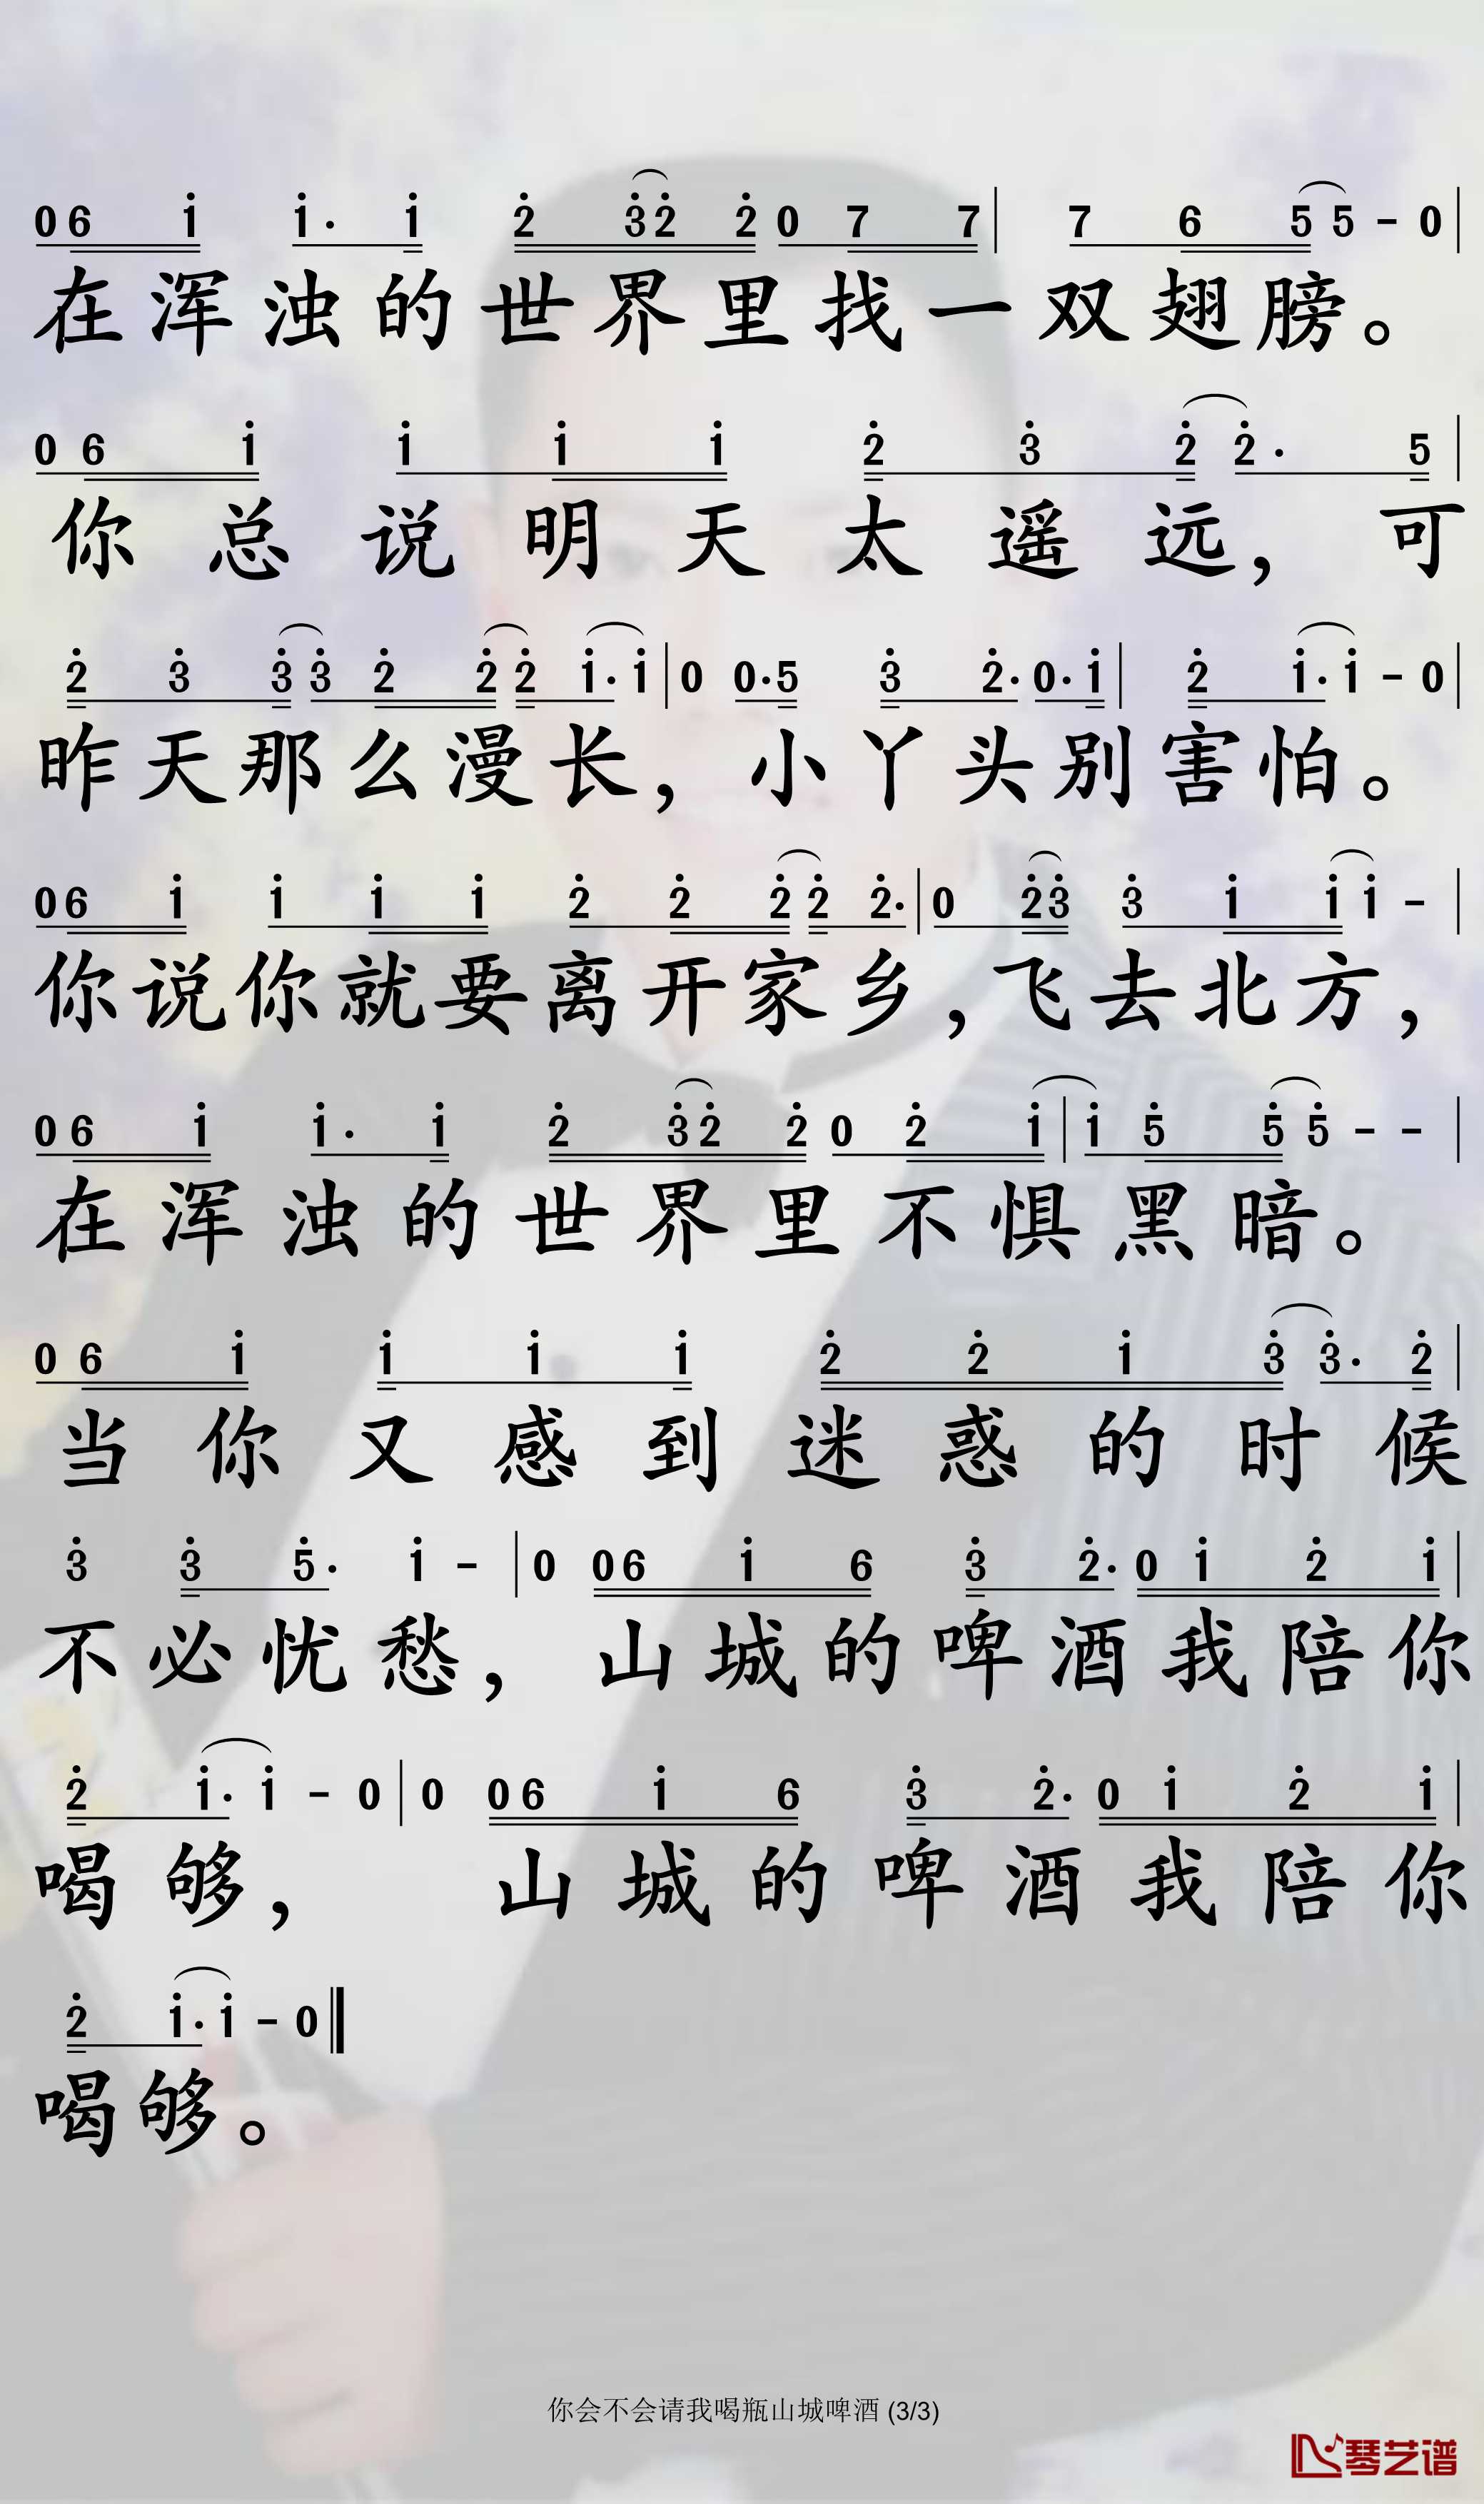 06i i·i 2322077|7655-0|
在浑浊的世界里找一双翅膀。
06i iii 2322·5|
你总说明天太遥远，可
233322 2i·i|0 0·532·0·i|2i·i-0|
昨天那么漫长，小丫头别害怕。
06i iii 22222·|0233iii-|
你说你就要离开家乡，飞去北方，
06i i·i 232202i|i555--|
在浑浊的世界里不惧黑暗。
06i iii 22i33·2|
当你又感到迷惑的时候
335·i-|0 06i632·0i2i|
不必忧愁，山城的啤酒我陪你
2i·i-0|0 06i632·0i2i|
喝够，山城的啤酒我陪你
2i·i-0
喝够。
你会不会请我喝瓶山城啤酒 (3/3)
琴艺谱